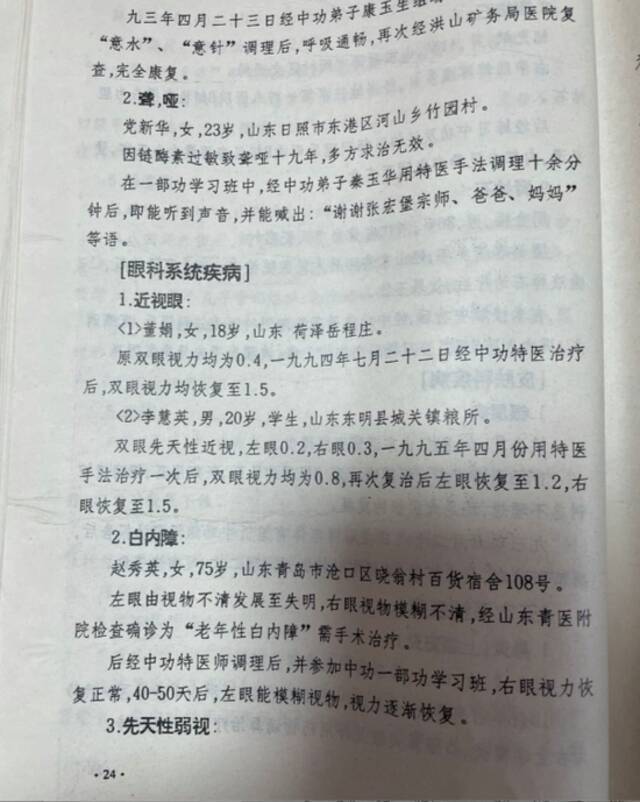 九三年四月二十三日经中功弟子康玉生组
“意水”、“意针”调理后，呼吸通畅，再次经洪山矿务局医院复
查，完全康复。
2.聋，哑：
党新华，女，23岁，山东日照市东港区河山乡竹园村。
因链酶素过敏致聋哑十九年，多方求治无效。
在一部功学习班中，经中功弟子秦玉华用特医手法调理十余分
钟后，即能听到声音，并能喊出：“谢谢张宏堡宗师、爸爸、妈妈”
等语。
[眼科系统疾病]
1.近视眼：
<1>董娟，女，18岁，山东 荷泽岳程庄。
原双眼视力均为0.4，一九九四年七月二十二日经中功特医治疗
后，双眼视力均恢复至1.5。
<2>李慧英，男，20岁，学生，山东东明县城关镇粮所。
双眼先天性近视，左眼0.2，右眼0.3，一九九五年四月份用特医
手法治疗一次后，双眼视力均为0.8，再次复治后左眼恢复至1.2，右
眼恢复至1.5。
2.白内障：
赵秀英，女，75岁，山东青岛市沧口区晓翁村百货宿舍108号。
左眼由视物不清发展至失明，右眼视物模糊不清，经山东青医附
院检查确诊为“老年性白内障”需手术治疗。
后经中功特医师调理后，并参加中功一部功学习班，右眼视力恢
复正常，40-50天后，左眼能模糊视物，视力逐渐恢复。
3.先天性弱视：
·24·